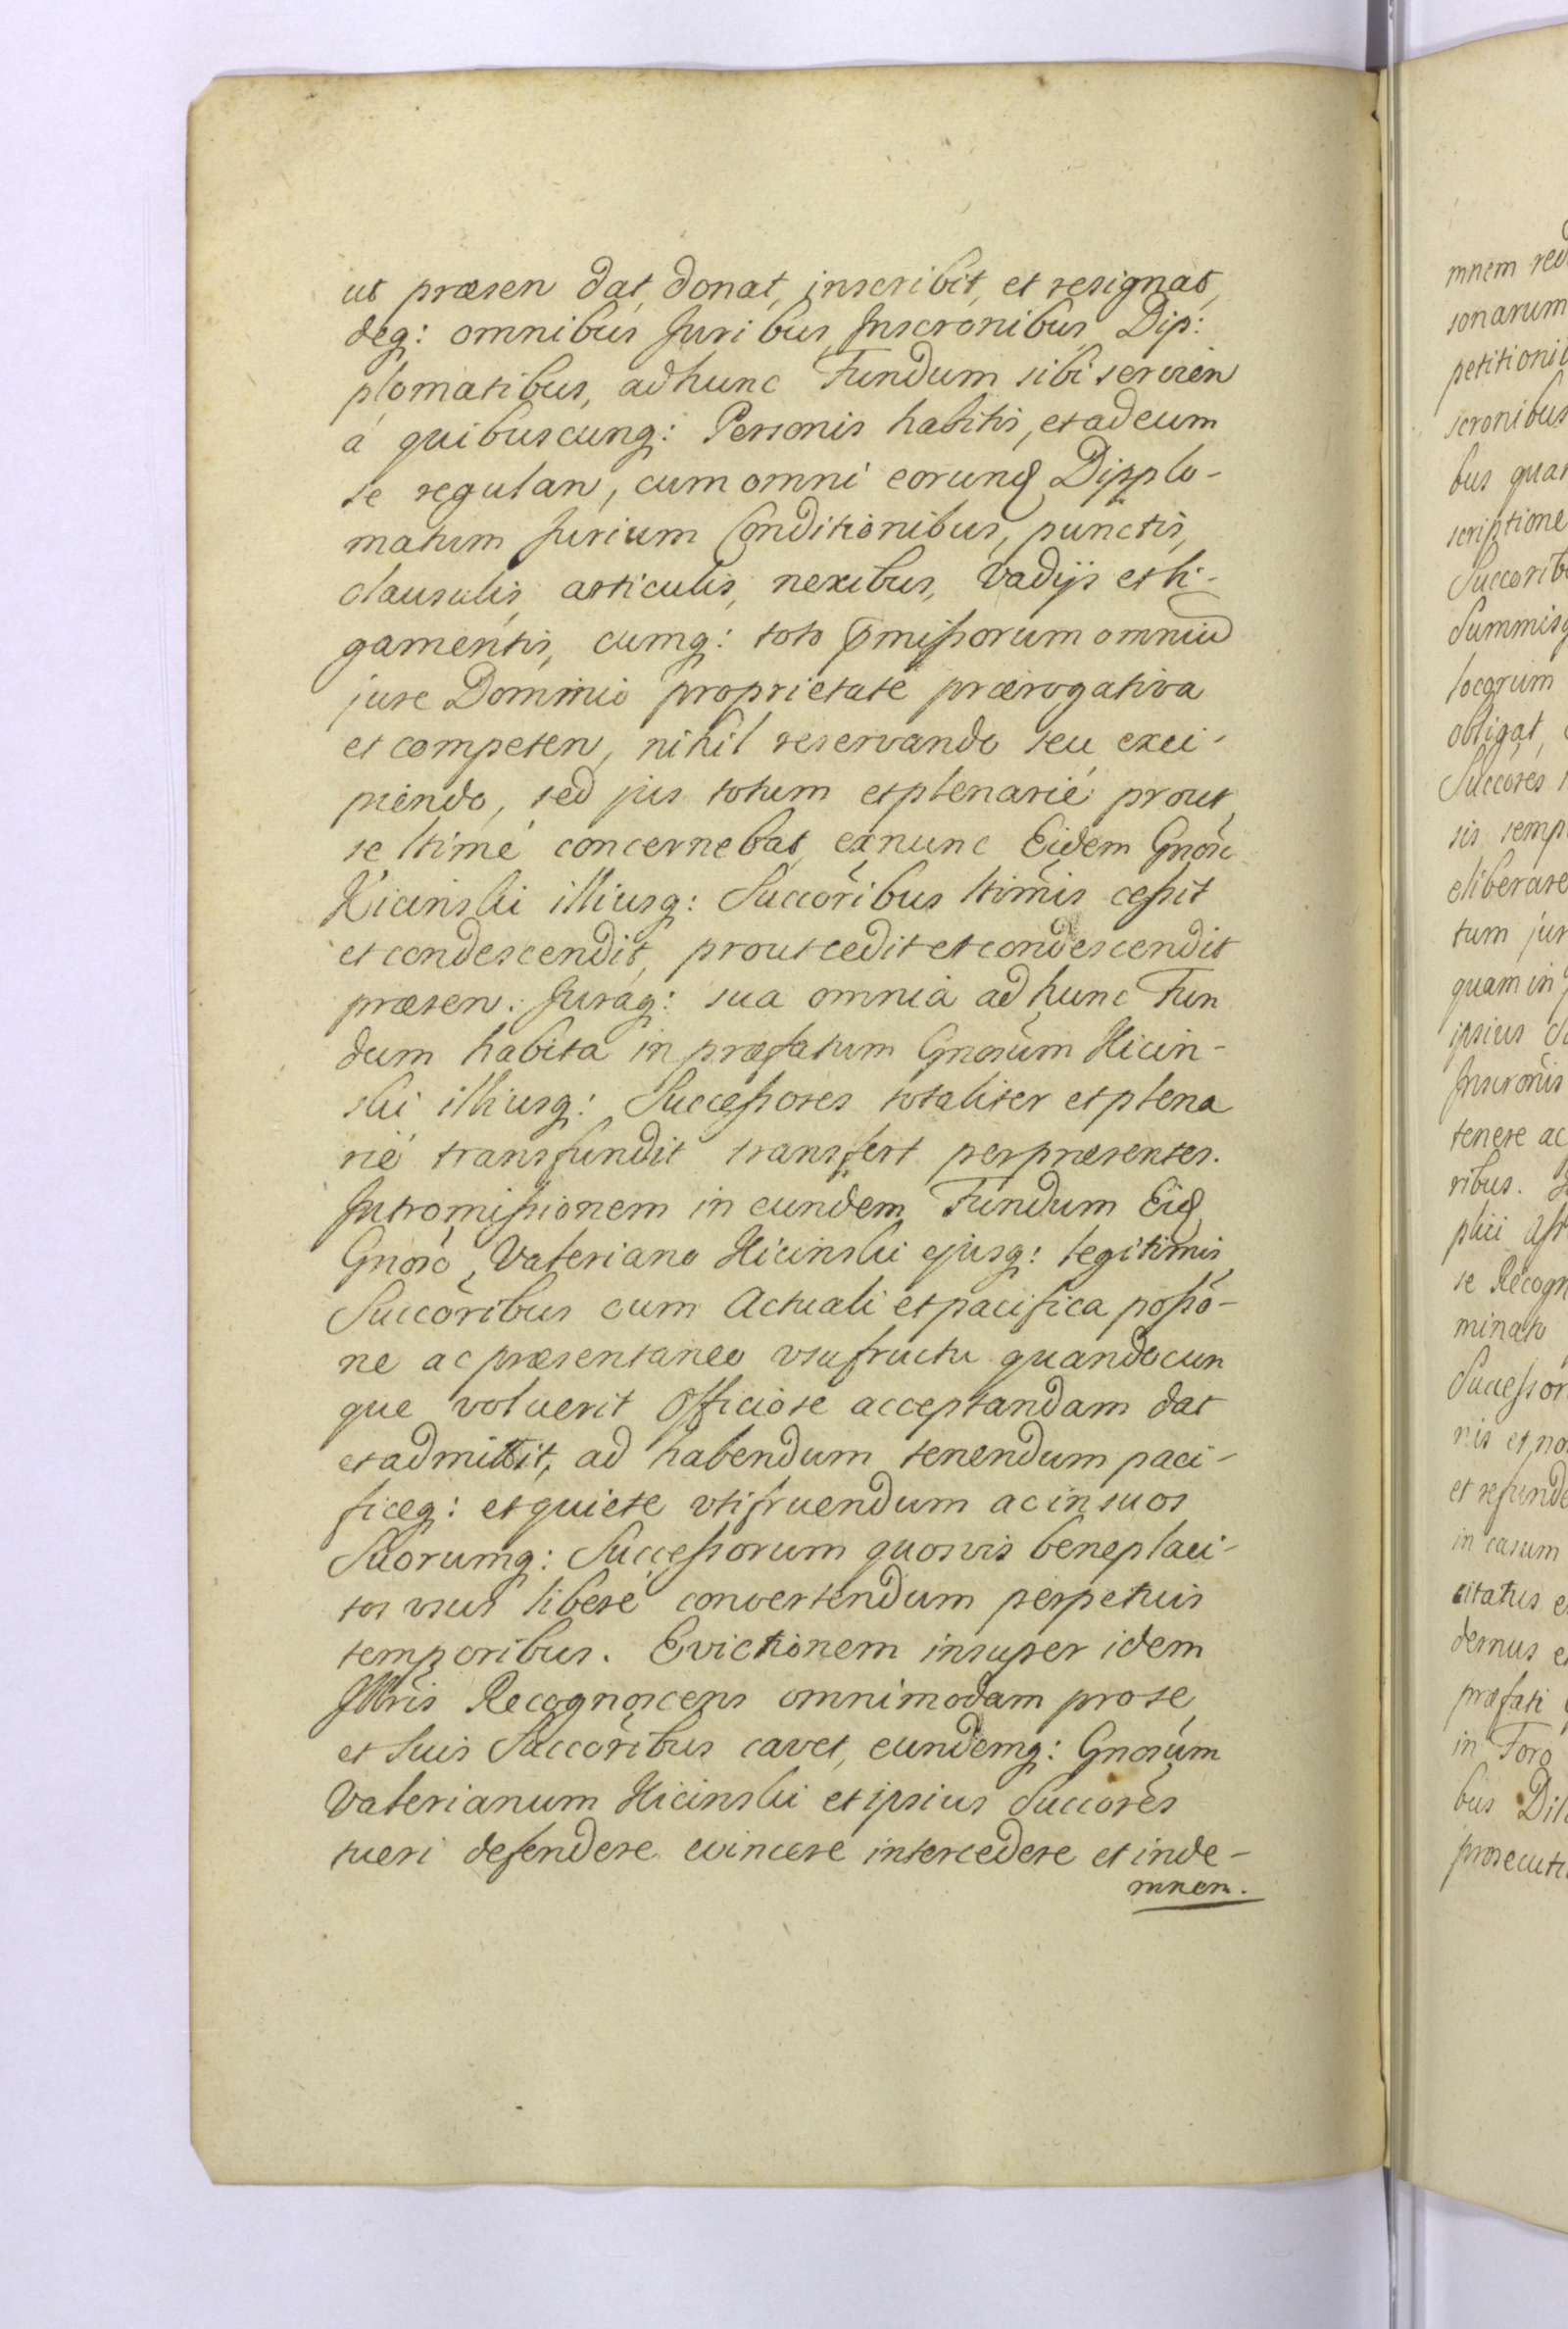 ut præsen dat, donat, inscribit, et resignat,
deq: omnibus Juribus Inscronibus Dip:
plomatibus, ad hunc Fundum sibi servien
á quibuscunq: Personis habitis, et ad eum
se regulan, cum omni eorund Dipplo-
matum Jurium Conditionibus, punctis,
clausulis, articulis, nexibus, Vadijs et li-
gamentis, cumq: toto pmissorum omniu
jure Dominio proprietate prærogativa
et competen, nihil reservando seu exci-
piendo, sed jus totum et plenarié prout
se ltimé concernebat, ex nunc Eidem Gnoso
Kicinski illiusq: Succoribus ltimis cessit
et condescendit, prout cedit et condescendit
præsen. Juraq: sua omnia ad hunc Fun
dum habita in præfatum Gnosum Kicin-
ski illiusq: Successores totaliter et plena
rié transfundit transfert per præsentes.
Intromissionem in eundem Fundum Eid
Gnoso Valeriano Kicinski ejusq: legitimis
Succoribus cum Actuali et pacifica posso-
ne ac præsentaneo usufructu quandocun
que voluerit Officiose acceptandam dat
et admittit, ad habendum tenendum paci-
ficeq: et quiete utifruendum ac in suos
Suorumq: Successorum quosvis beneplaci-
tos usus liberé convertendum perpetuis
temporibus. Evictionem insuper idem
Illris Recognoscens omnimodam pro se
et Suis Succoribus cavet, eundemq: Gnosum
Valerianum Kicinski et ipsius Succores
tueri defendere evincere intercedere et inde-
mnem.
mnem
sonarum
scronibus
bus
scriptione
locorum
obligat,
Succores
sis semp
eliberare
tum jur
quam in
ipsius
Inscronis
tenere ac
ribus.
plici
se Recogn
minato
Successor
nis et no
et refunde
in casum
citatus e
demus e
præfati
in Foro
bus
prosecuti